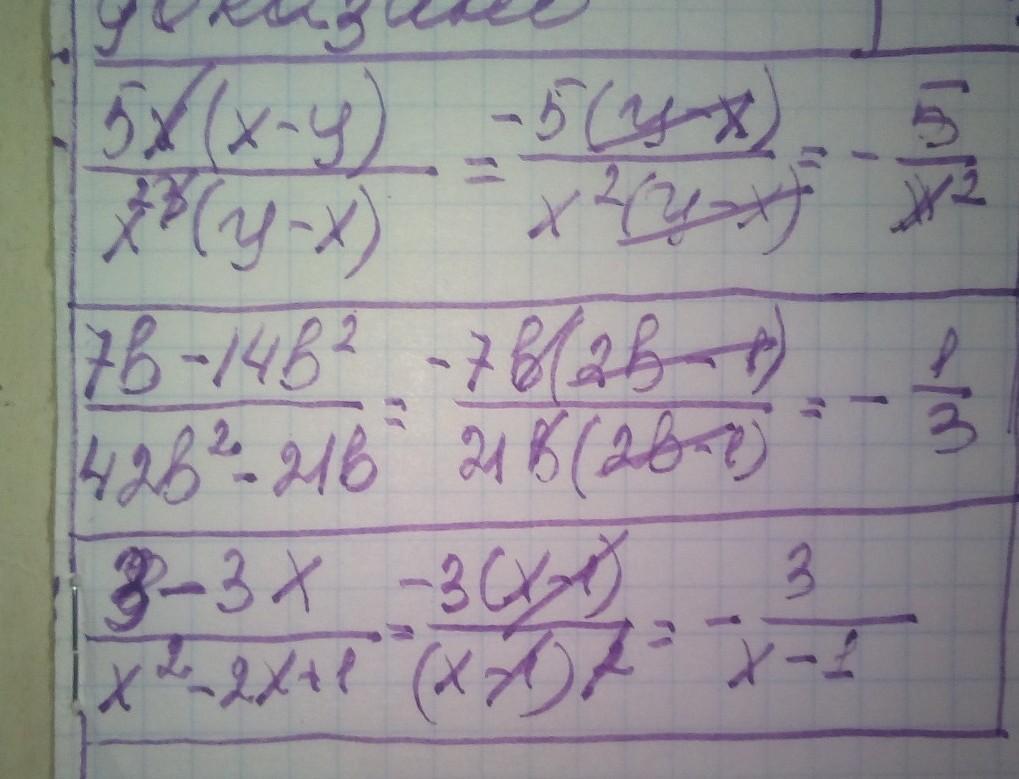 5x(x-y) / x²³(y-x) = -5(y-x) / x²(y-x) = - 5 / x²
7b-14b² / 42b²-21b = -7b(2b-1) / 21b(2b-1) = - 1 / 3
3-3x / x²-2x+1 = -3(x-1) / (x-1)² = - 3 / x-1